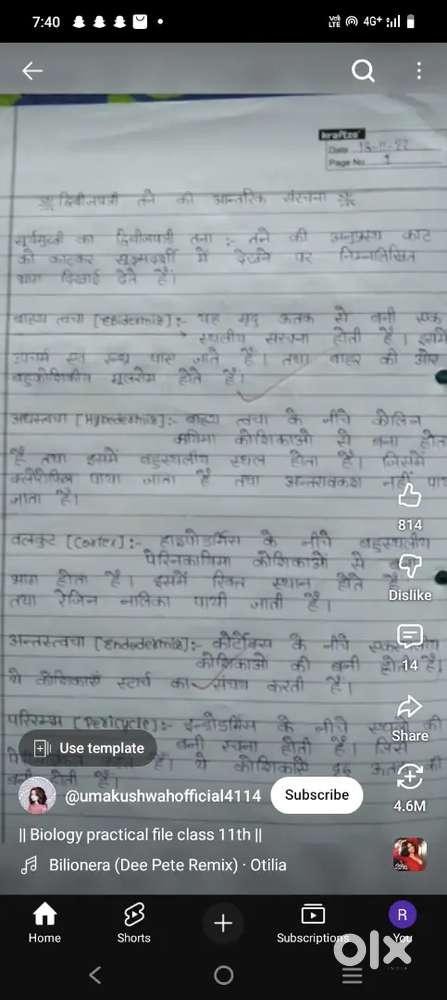 7:40
4G+
kraftzo
Date 15-11-22
Page No. 1
द्विबीजपत्री तने की आन्तरिक संरचना
सूर्यमुखी का द्विबीजपत्री तना :- तने की अनुप्रस्थ काट
को काटकर सूक्ष्मदर्शी में देखने पर निम्नलिखित
भाग दिखाई देते हैं।
बाह्य त्वचा [epidermis] :- यह मृदु ऊतक से बनी एक
स्थलीय संरचना होती है। इसमें
उपचर्म एवं रन्ध्र पाये जाते है। तथा बाहर की ओर
बहुकोशिकीय मूलरोम होते है।
अधस्त्वचा [Hypodermis] :- बाह्य त्वचा के नीचे कोलेन
कायमा कोशिकाओं से बना होता
है तथा इसमें बहुस्थलीय स्थल होता है। जिसमें
पाया जाता है तथा अन्तरावकाश नहीं पाय
जाता है।
वल्कुट [Cortex] :- हाइपोडर्मिस के नीचे बहुस्थलीय
कोशिकाओं से
भाग होता है। इसमें रिक्त स्थान होते है
तथा रेजिन नालिका पायी जाती है।
अन्तस्त्वचा [Endodermis] :- कोर्टेक्स के नीचे
कोशिकाओं की बनी होती है।
ये कोशिकाएं स्टार्च का संचय करती है।
परिरम्भ [Pericycle] :- इन्डोडर्मिस के नीचे स्थलों की
बनी रचना होती है। जिसे
है। ये कोशिकाएं दृढ़
होती है।
814
Dislike
14
Share
4.6M
Use template
@umakushwahofficial4114
Subscribe
|| Biology practical file class 11th ||
Bilionera (Dee Pete Remix) · Otilia
Home
Shorts
Subscriptions
R
You
olx
INDIA